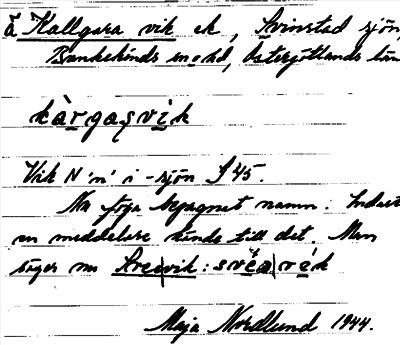 å Kallgara vik ek, Svinstad sjön,
Bankekinds ens hd, Östergötlands län
kàrgasvìk
Vik N 'n' i -sjön S 45.
Nu föga begagnat namn. Endast
en meddelare kände till det. Man
säger nu Svea|vik: svèa|vék
Maja Nordlund 1944.